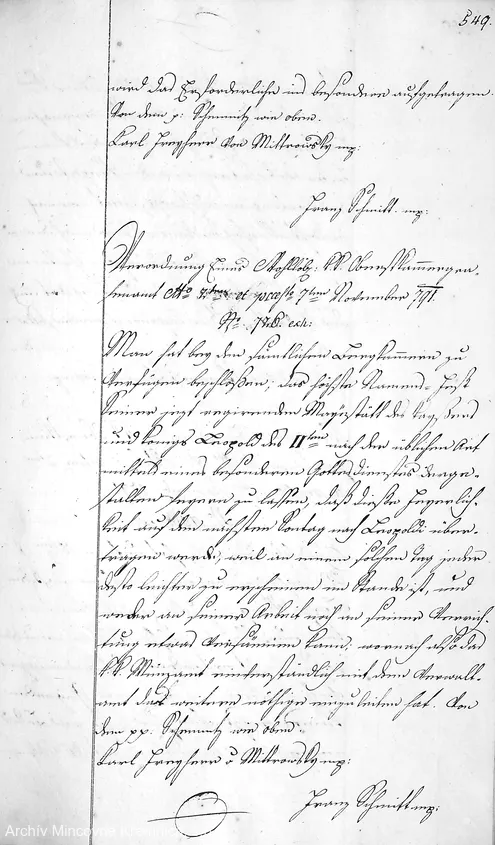 549.
wird das Erforderliche ins besondere aufgetragen.
Von dem p: Schemnitz wie oben.
Karl Freyherr von Mittrowsky mp:
Franz Schmitt. mp:
Verordnung Eines Wohllöb: kk. Oberstkammergra-
fenamt dtto 7ten et praes: 7ten November 791
No. 1726. exh:
Man hat bey den sämtlichen Bergkammern zu
Verfügen beschloßen; das höchste Namens-Fest
Seiner jezt regirenden Mayestätt des Kaysers
und Königs Leopold des IIten nach der üblichen Art
mittels eines besonderen Gottesdienstes derge-
stalten feyern zu lassen, daß diese Feyerlich-
keit auf den nächsten Sontag nach Leopoldi über-
tragen werde, weil an einem solchen Tag jeder
desto leichter zu erscheinen im Stande ist, und
weder an seiner Arbeit noch an seiner Verrich-
tung etwas versäumen kann; wornach also das
k.k. Münzamt einverständlich mit dem Verwalt-
amt das weitere nöthige einzuleiten hat. Von
dem pp. Schemnitz wie oben.
Karl Freyherr v Mittrowsky mp:
Franz Schmitt mp:
Archiv Mincovne Kremnica